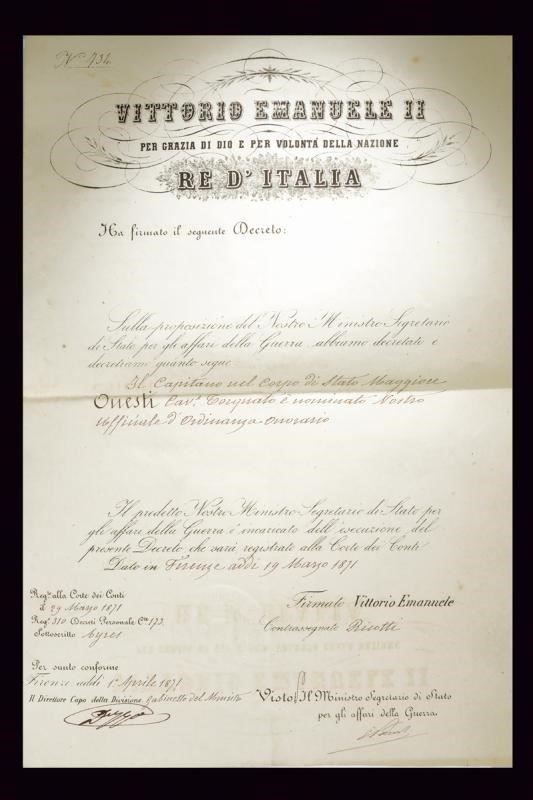 N° 734
VITTORIO EMANUELE II
PER GRAZIA DI DIO E PER VOLONTÀ DELLA NAZIONE
RE D' ITALIA
Ha firmato il seguente Decreto:
Sulla proposizione del Nostro Ministro Segretario
di Stato per gli affari della Guerra abbiamo decretato e
decretiamo quanto segue
Il Capitano nel Corpo di Stato Maggiore
Onesti Cav. Torquato è nominato Nostro
Uffiziale d'Ordinanza onorario
Il predetto Nostro Ministro Segretario di Stato per
gli affari della Guerra è incaricato dell'esecuzione del
presente Decreto che sarà registrato alla Corte dei Conti
Dato in Firenze addì 19 Marzo 1871
Reg.to alla Corte dei Conti
il 29 Marzo 1871
Reg.o 310 Decreti Personale C.te 173.
Sottoscritto Ayres
Firmato Vittorio Emanuele
Contrassegnato Ricotti
Per sunto conforme
Firenze addì 1° Aprile 1871
Il Direttore Capo della Divisione Gabinetto del Ministro
Visto Il Ministro Segretario di Stato
per gli affari della Guerra.